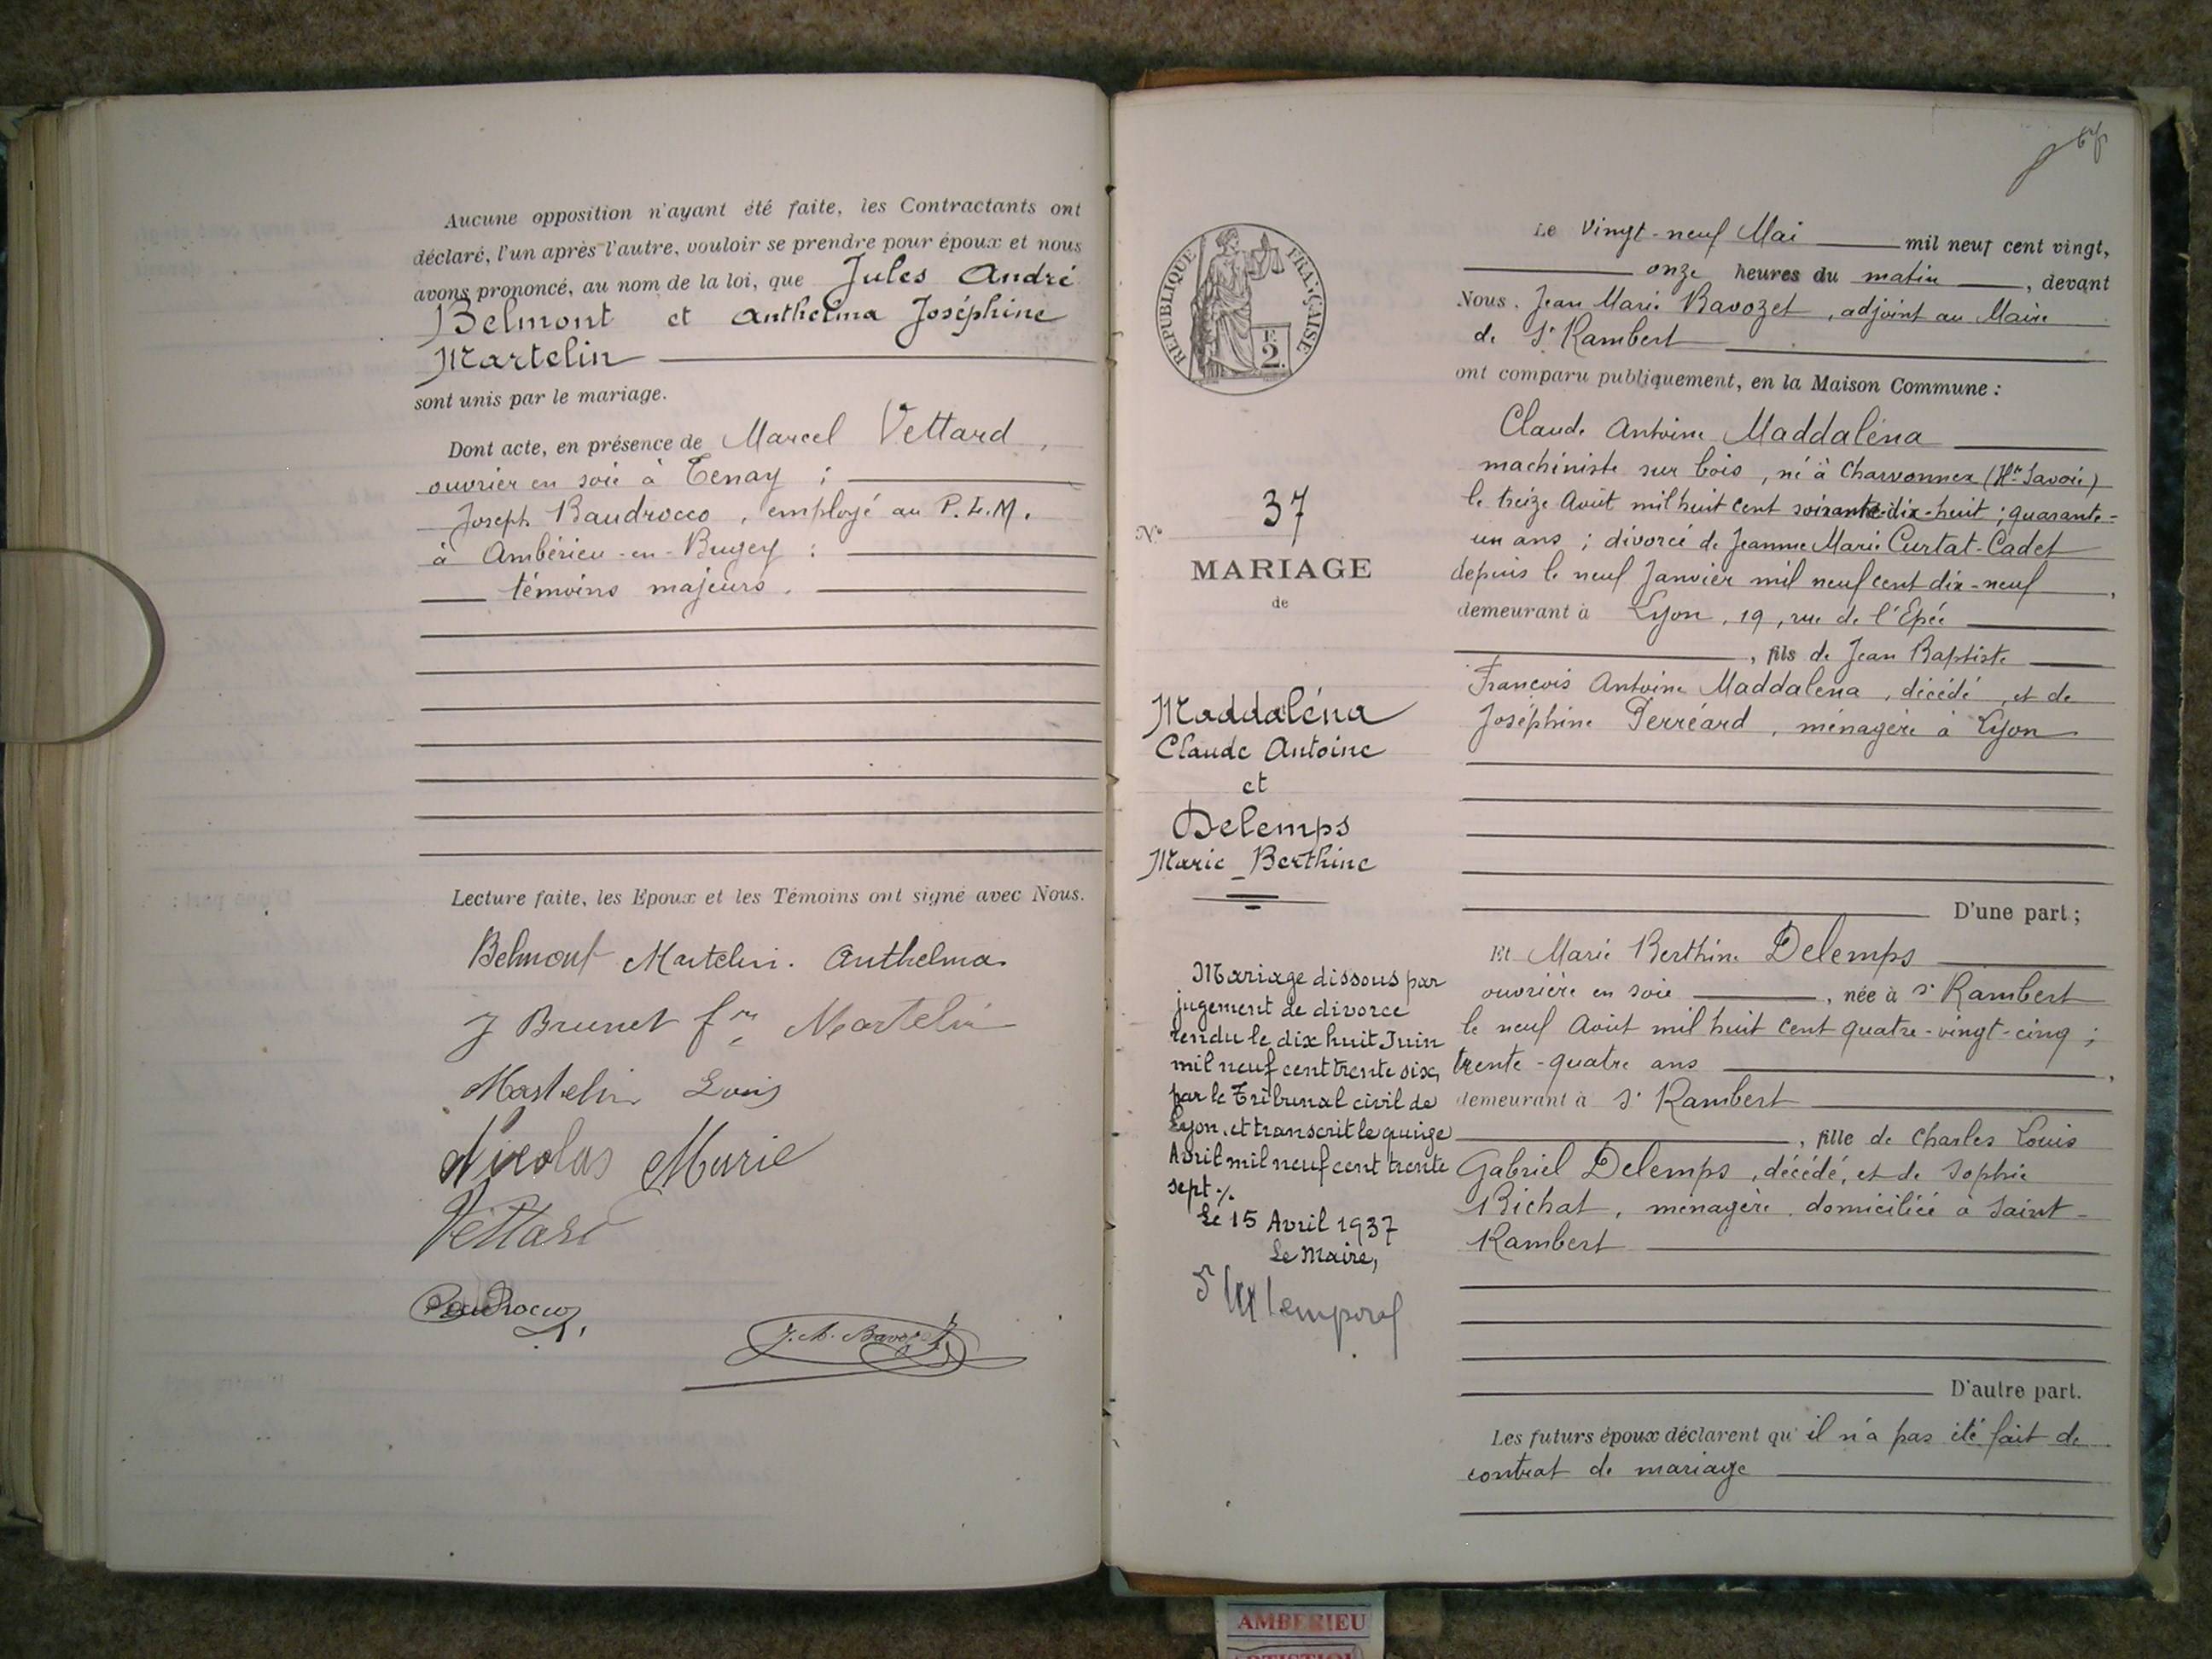 Aucune opposition n'ayant été faite, les Contractants ont
déclaré, l'un après l'autre, vouloir se prendre pour époux et nous
avons prononcé, au nom de la loi, que Jules André
Belmont et Anthelma Joséphine
Martelin
sont unis par le mariage.
Dont acte, en présence de Marcel Vettard,
ouvrier en soie à Tenay ;
Joseph Baudrocco, employé au P.L.M.
à Ambérieu-en-Bugey :
témoins majeurs.
Lecture faite, les Epoux et les Témoins ont signé avec Nous.
Belmont Martelin. Anthelma
J Brunet fme Martelin
Martelin Louis
Nicolas Marie
Vettard
Baudrocco
J. M. Bavozet
RÉPUBLIQUE FRANÇAISE
F.
2.
N° 37
MARIAGE
de
Maddaléna
Claude Antoine
et
Delemps
Marie-Berthine
Mariage dissous par
jugement de divorce
rendu le dix huit Juin
mil neuf cent trente six,
par le Tribunal civil de
Lyon, et transcrit le quinze
Avril mil neuf cent trente
sept ./.
Le 15 Avril 1937
Le Maire,
Le Vingt-neuf Mai mil neuf cent vingt,
onze heures du matin, devant
Nous, Jean Marie Bavozet, adjoint au Maire
de St Rambert
ont comparu publiquement, en la Maison Commune :
Claude Antoine Maddaléna
machiniste sur bois, né à Charvonnex (Hte Savoie)
le treize Août mil huit cent soixante-dix-huit ; quarante-
un ans ; divorcé de Jeanne Marie Curtat-Cadet
depuis le neuf Janvier mil neuf cent dix-neuf,
demeurant à Lyon, 19, rue de l'Epée
, fils de Jean Baptiste
François Antoine Maddaléna, décédé, et de
Joséphine Terréard, ménagère à Lyon
D'une part ;
Et Marie Berthine Delemps
ouvrière en soie, née à St Rambert
le neuf Août mil huit cent quatre-vingt-cinq ;
trente-quatre ans,
demeurant à St Rambert
, fille de Charles Louis
Gabriel Delemps, décédé, et de Sophie
Richat, ménagère domiciliée à Saint-
Rambert
D'autre part.
Les futurs époux déclarent qu'il n'a pas été fait de
contrat de mariage
AMBERIEU